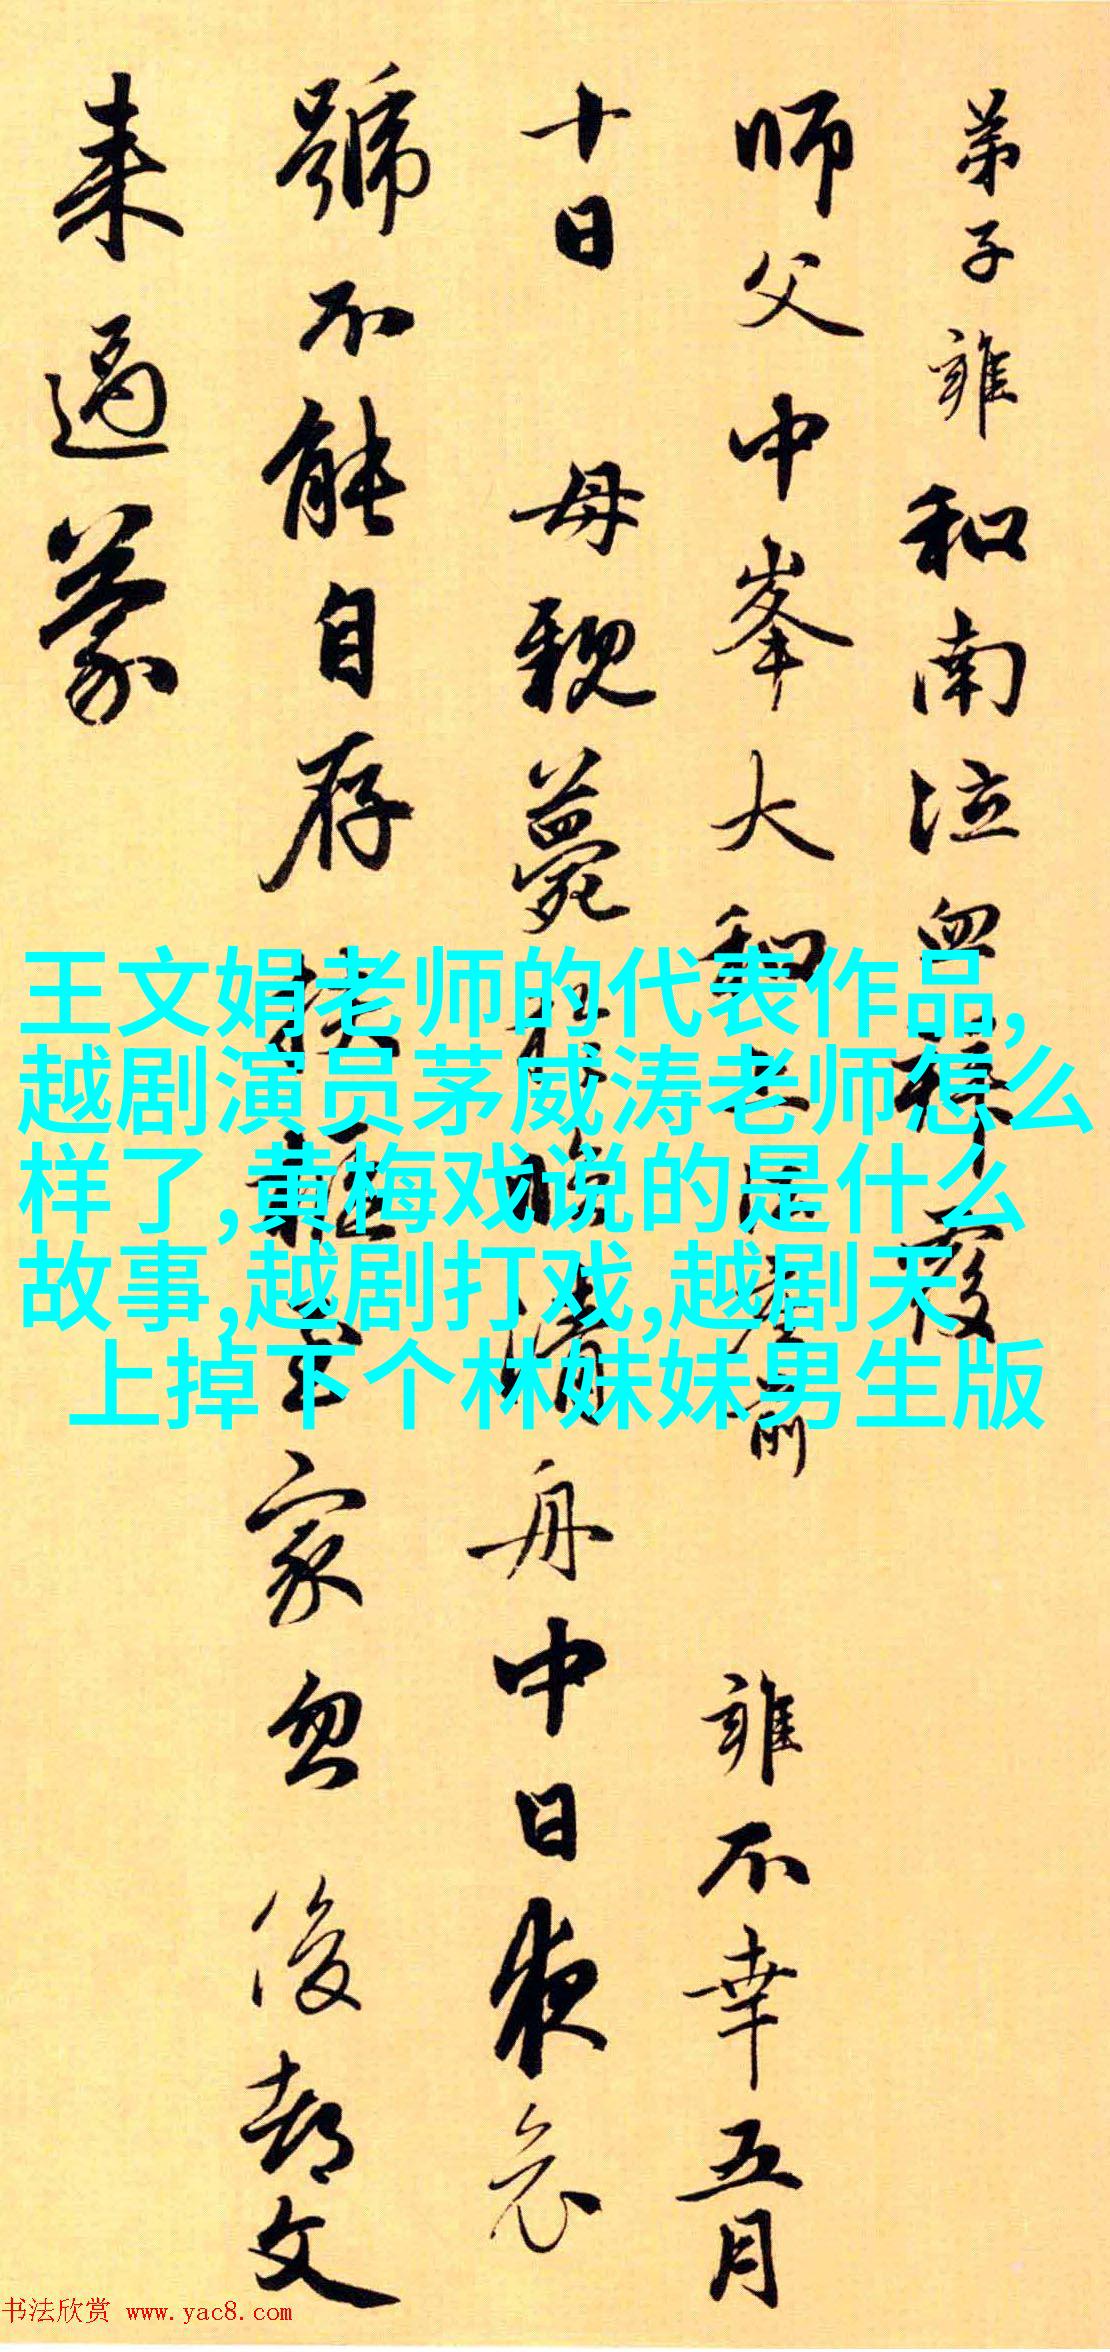 弟子雍和南泣血拜覆
師父中峯大和上法座前
雍不幸五月
十日 母親薨
晚清舟中日夜哀
號不能自存
家忽 後都文
来過蒙
王文娟老师的代表作品,
越剧演员茅威涛老师怎么
样了,黄梅戏说的是什么
故事,越剧打戏,越剧天
上掉下个林妹妹男生版
书法欣赏 www.yac8.com